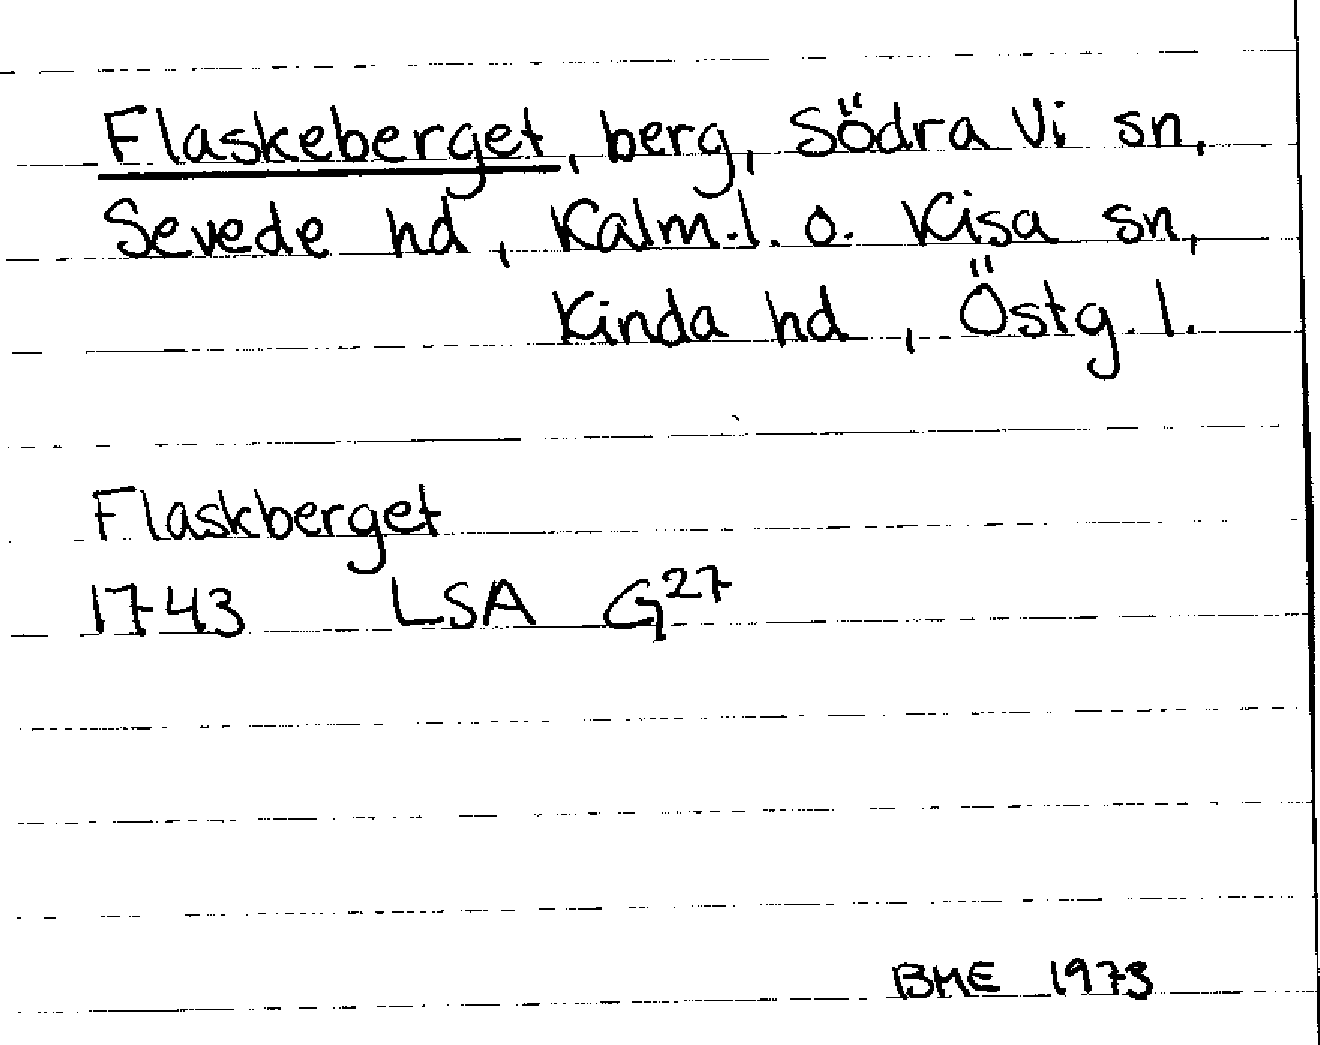 Flaskeberget, berg, Södra Vi sn,
Sevede hd, Kalm.l. o. Kisa sn,
Kinda hd, Östg. l.
Flaskberget
1743 LSA G27
BME 1973